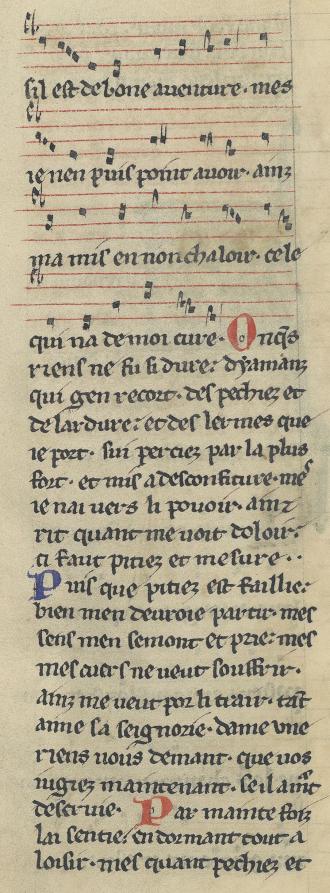 sil est de bone auenture· mes
ie nen puis point auoir· ainz
ma mis en nonchaloir· cele
qui na de moi cure· Onq̃s
riens ne fu si dure: dyamanz
qui gen recort· des pechiez et
de lardure: et des lermes que
ie port· sui perciez par la plus
fort· et mis a desconfiture· mes
ie nai uers li pouoir· ainz
rit quant me uoit doloir·
ci faut pitiez et mesure··
Puis que pitiez est faillie:
bien men deuroie partir· mes
sens men semont et prie: mes
mes cuers ne ueut souffrir·
ainz me ueut por li trair· tãt
aime sa seignorie· dame vne
riens vous demant· que uos
iugiez maintenant· se il
deseruie· Par mainte foiz
lai sentie: en dormant tout a
loisir· mes quant pechiez et